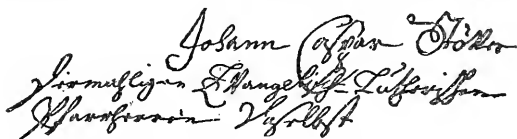 Johann Caspar Stöver
Diermahligen Evangelisch-Lutherischen
Pfarrherren Daselbst